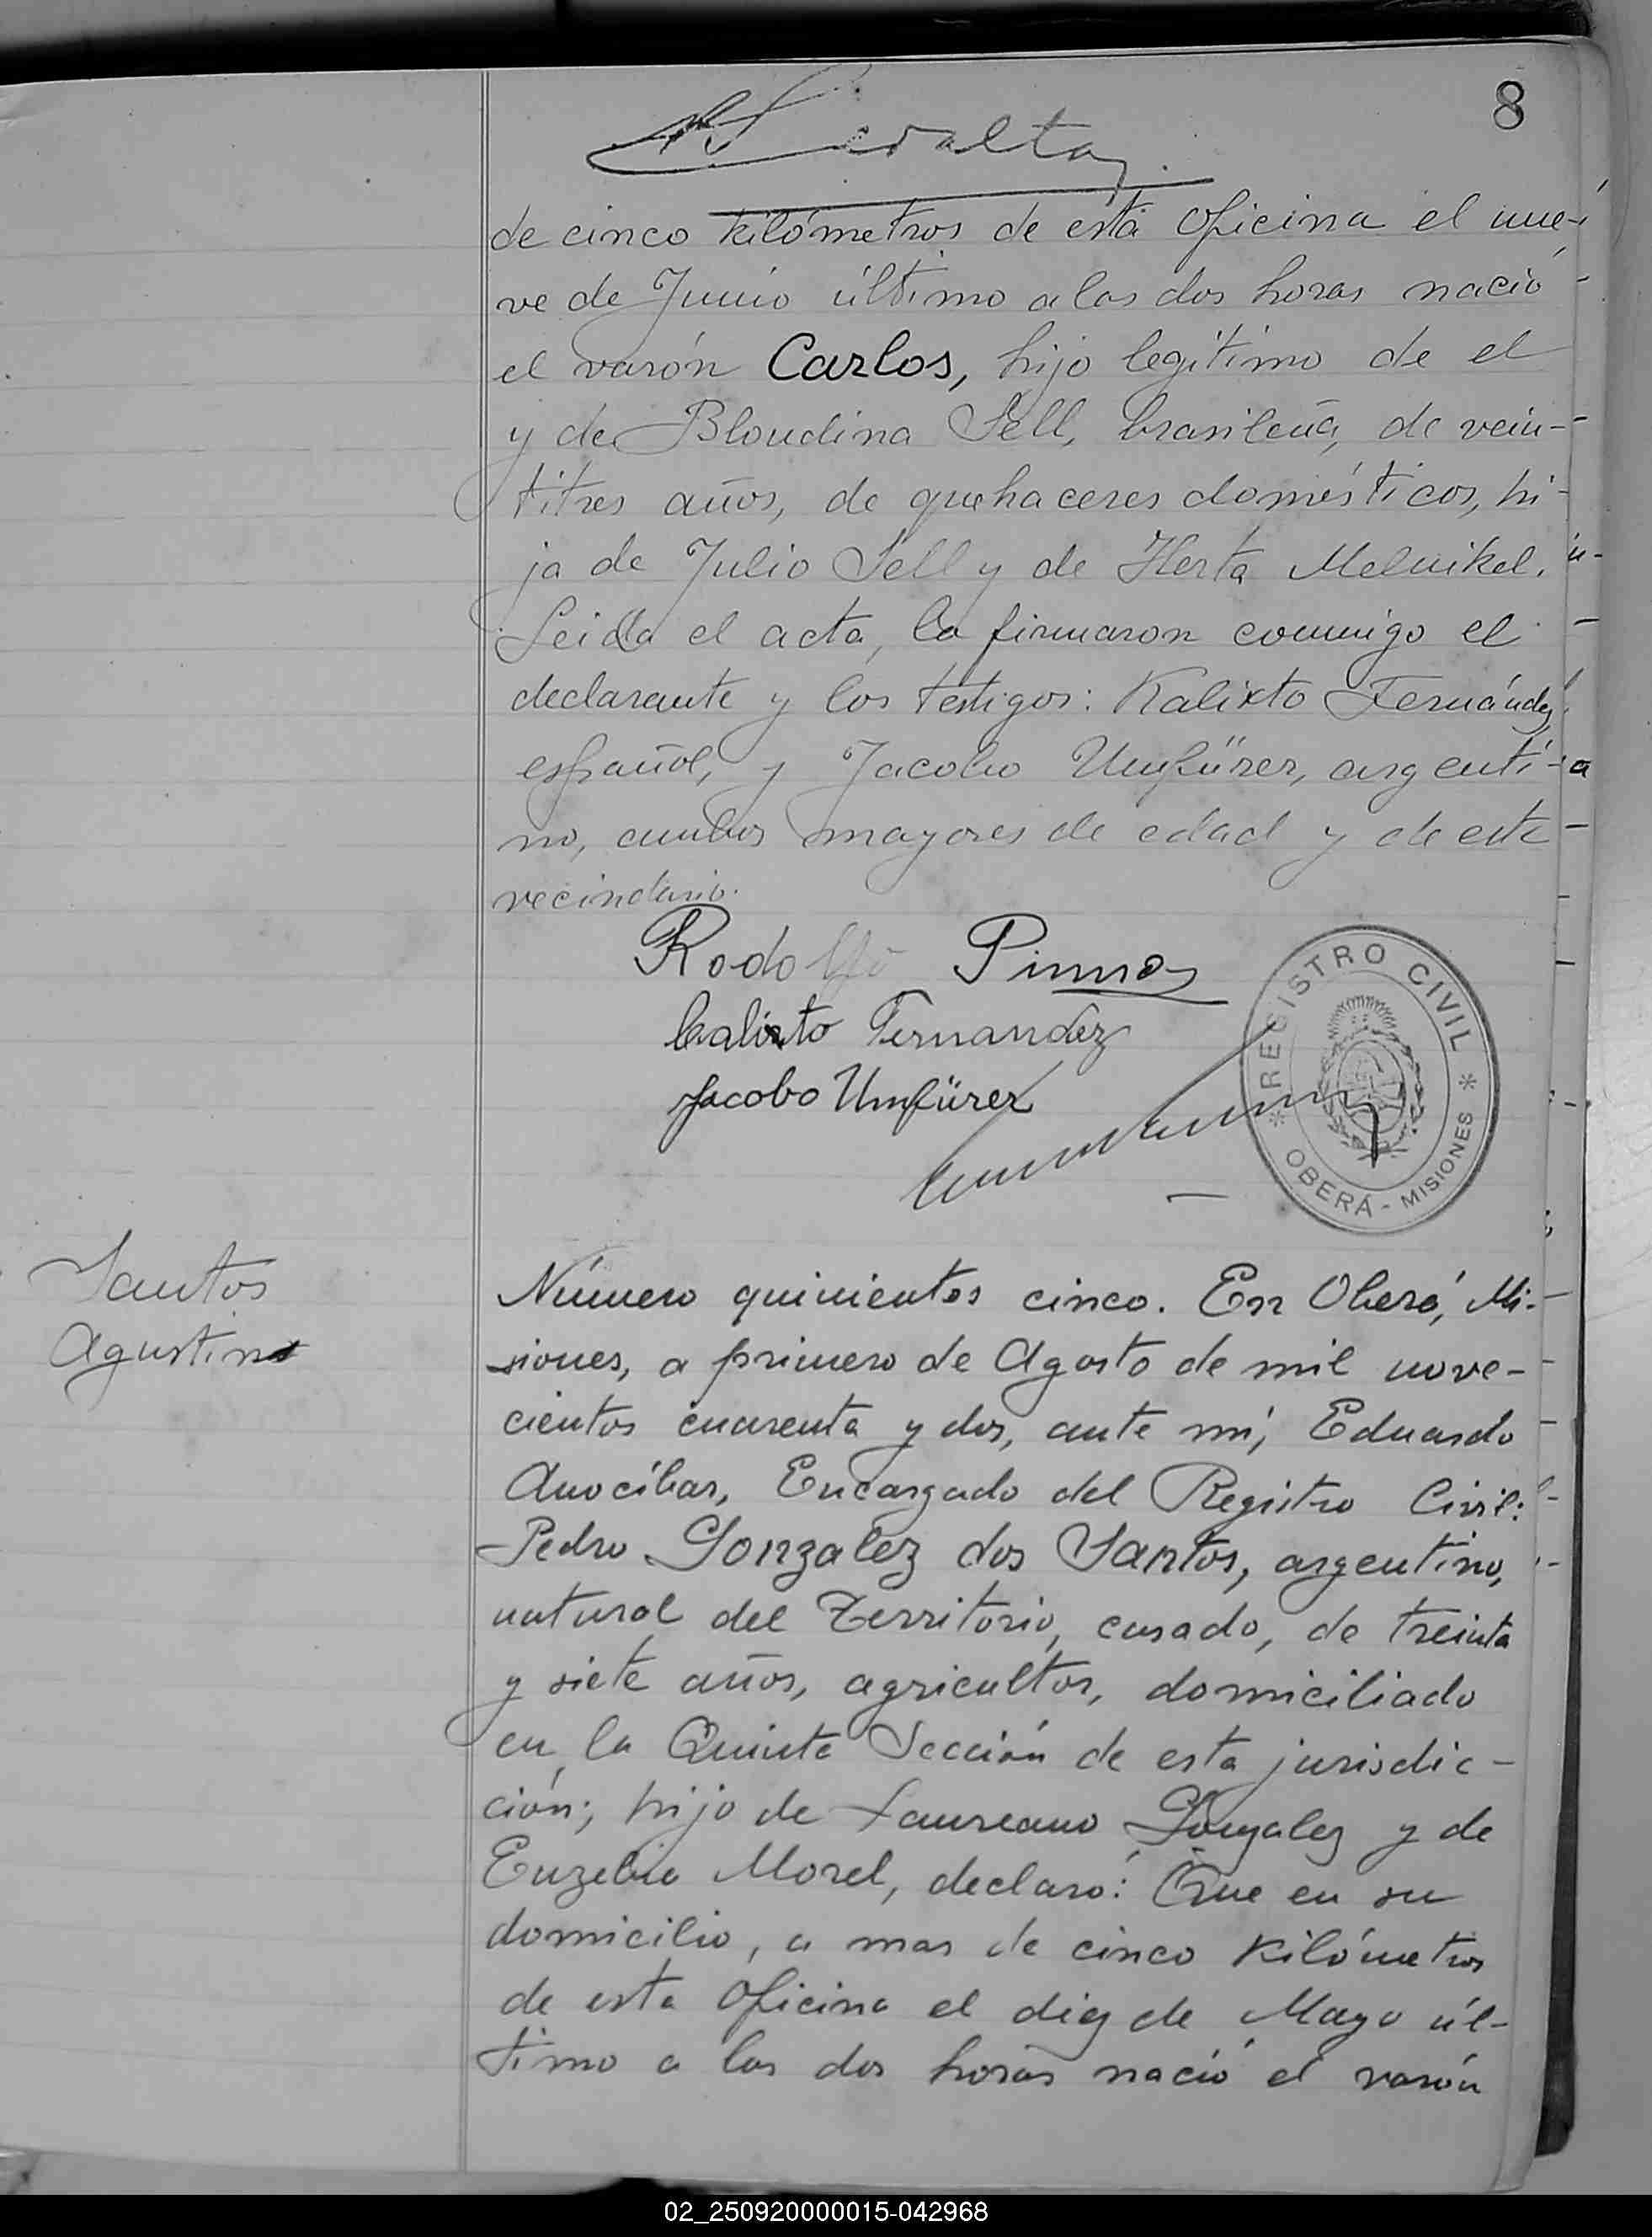 8
de cinco kilómetros de esta Oficina el nue-
ve de Junio último a las dos horas nació
el varón Carlos, hijo legítimo de el
y de Bloudina Sell, brasileña, de vein-
titres años, de quehaceres domésticos, hi-
ja de Julio Sell y de Herta Melnikel.
Leida el acta, la firmaron conmigo el
declarante y los testigos: Kalixto Fernández,
español, y Jacobo Umfürer, argenti-
no, ambos mayores de edad y de este
vecindario.
Rodolfo
Calixto Fernandez
Jacobo Umfürer
REGISTRO CIVIL
OBERÁ - MISIONES
Santos
Agustin
Número quinientos cinco. En Oberá, Mi-
siones, a primero de Agosto de mil nove-
cientos cuarenta y dos, ante mí, Eduardo
Anocíbar, Encargado del Registro Civil:
Pedro Gonzalez dos Santos, argentino,
natural del Territorio, casado, de treinta
y siete años, agricultor, domiciliado
en la Quinta Sección de esta jurisdic-
ción; hijo de Laureano Gonzalez y de
Euzebia Morel, declaró: Que en su
domicilio, a mas de cinco kilómetros
de esta Oficina el diez de Mayo úl-
timo a las dos horas nació el varón
02_250920000015-042968